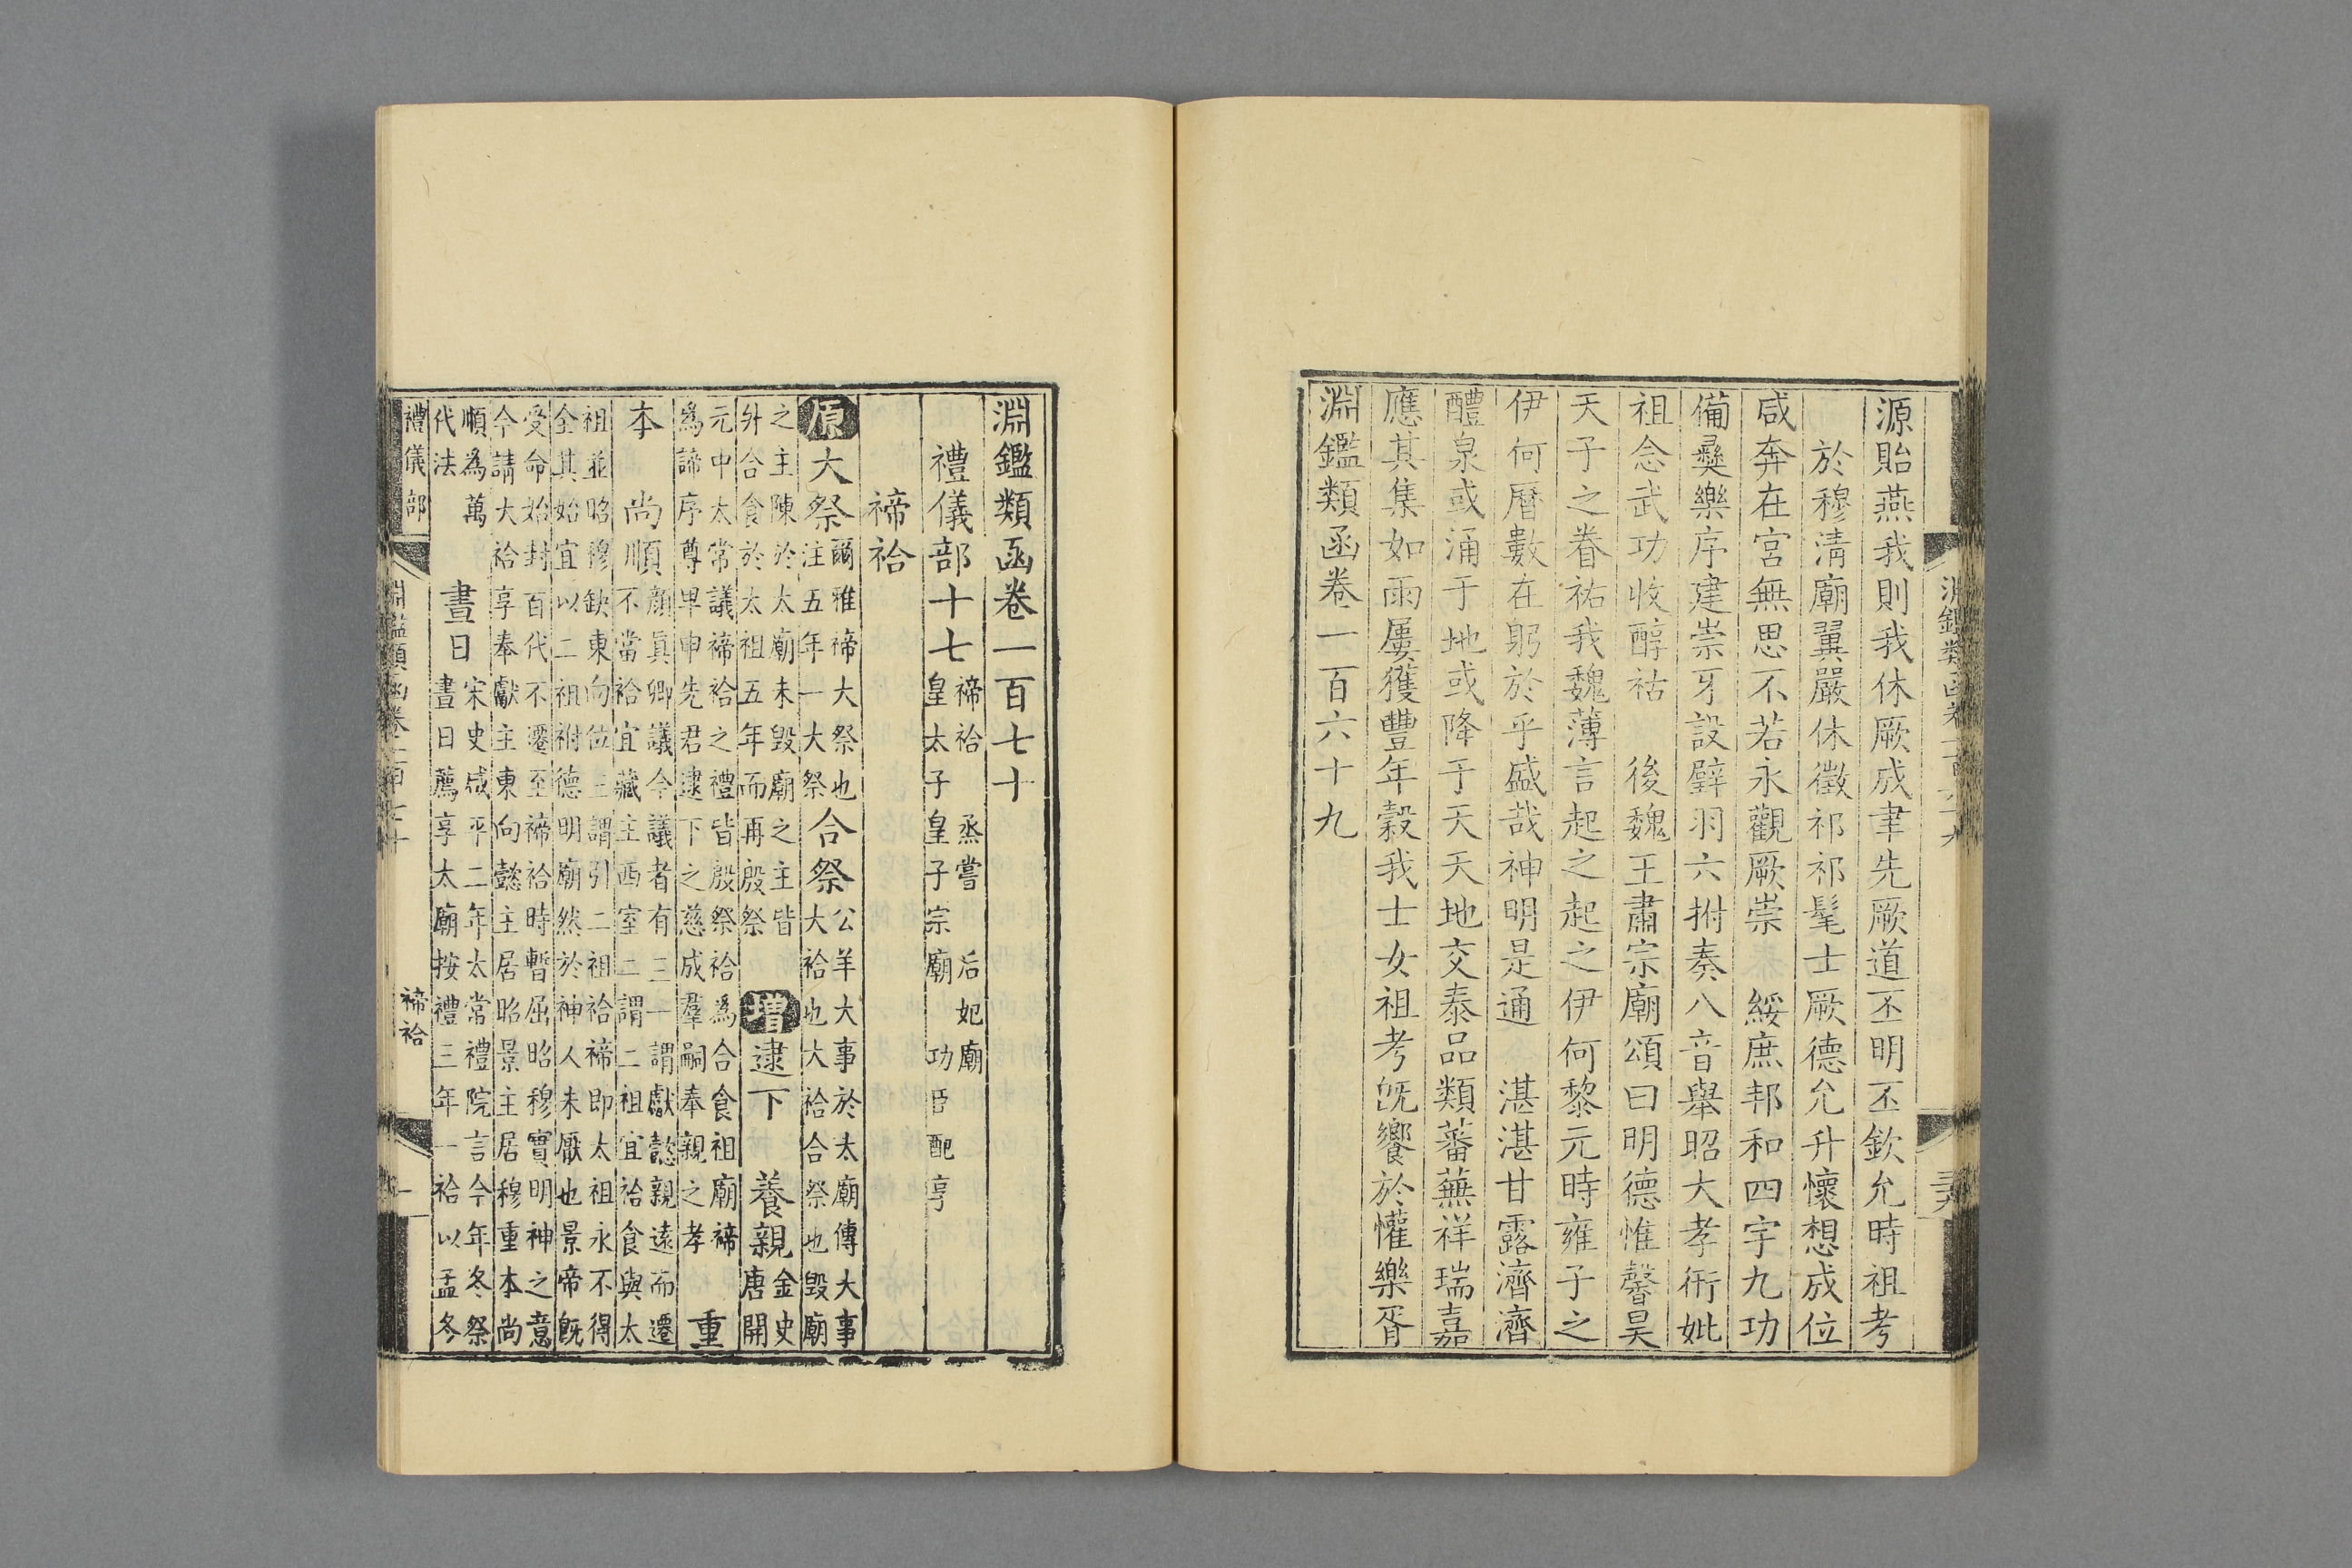 源貽燕我則我休厥成聿先厥道丕明丕欽允時祖考
於穆清廟翼嚴休徵祁祁髦士厥德允升懷想成位
咸奔在宮無思不若永觀厥崇 綏庶邦和四宇九功
備彝樂序建崇牙設璧羽六拊奏八音舉昭大孝衎妣
祖念武功收醇祜 後魏王肅宗廟頌曰明德惟馨昊
天子之眷祐我魏薄言起之起之伊何黎元時雍子之
伊何曆數在躬於乎盛哉神明是通 湛湛甘露濟濟
醴泉或涌于地或降于天天地交泰品類蕃蕪祥瑞嘉
應其集如雨屢獲豐年穀我士女祖考旣饗於懽樂胥
淵鑑類函卷一百六十九
淵鑑類函卷一百七十
禮儀部十七
禘祫 烝嘗 后妃廟
皇太子皇子宗廟 功臣配享
禘祫
原大祭
爾雅禘大祭也
注五年一大祭
合祭
公羊大事於太廟傳大事
大祫也大祫合祭也毀廟
之主陳於大廟未毀廟之主皆
升合食於太祖五年而再殷祭
增逮下 養親
金史
唐開
元中太常議禘祫之禮皆殷祭祫爲合食祖廟禘
爲諦序尊卑申先君逮下之慈成羣嗣奉親之孝
重
本 尚順
顏眞卿議今議者有三一謂獻懿親遠而遷
不當祫宜藏主西室二謂二祖宜祫食與太
祖並昭穆缺東向位三謂引二祖祫禘即太祖永不得
全其始宜以二祖祔德明廟然於神人未厭也景帝旣
受命始封百代不遷至禘祫時暫屈昭穆實明神之意
今請大祫享奉獻主東向懿主居昭景主居穆重本尚
順爲萬
代法
晝日
宋史咸平二年太常禮院言今年冬祭
晝日薦享太廟按禮三年一祫以孟冬
禮儀部
淵鑑類函卷一百七十
禘祫
一